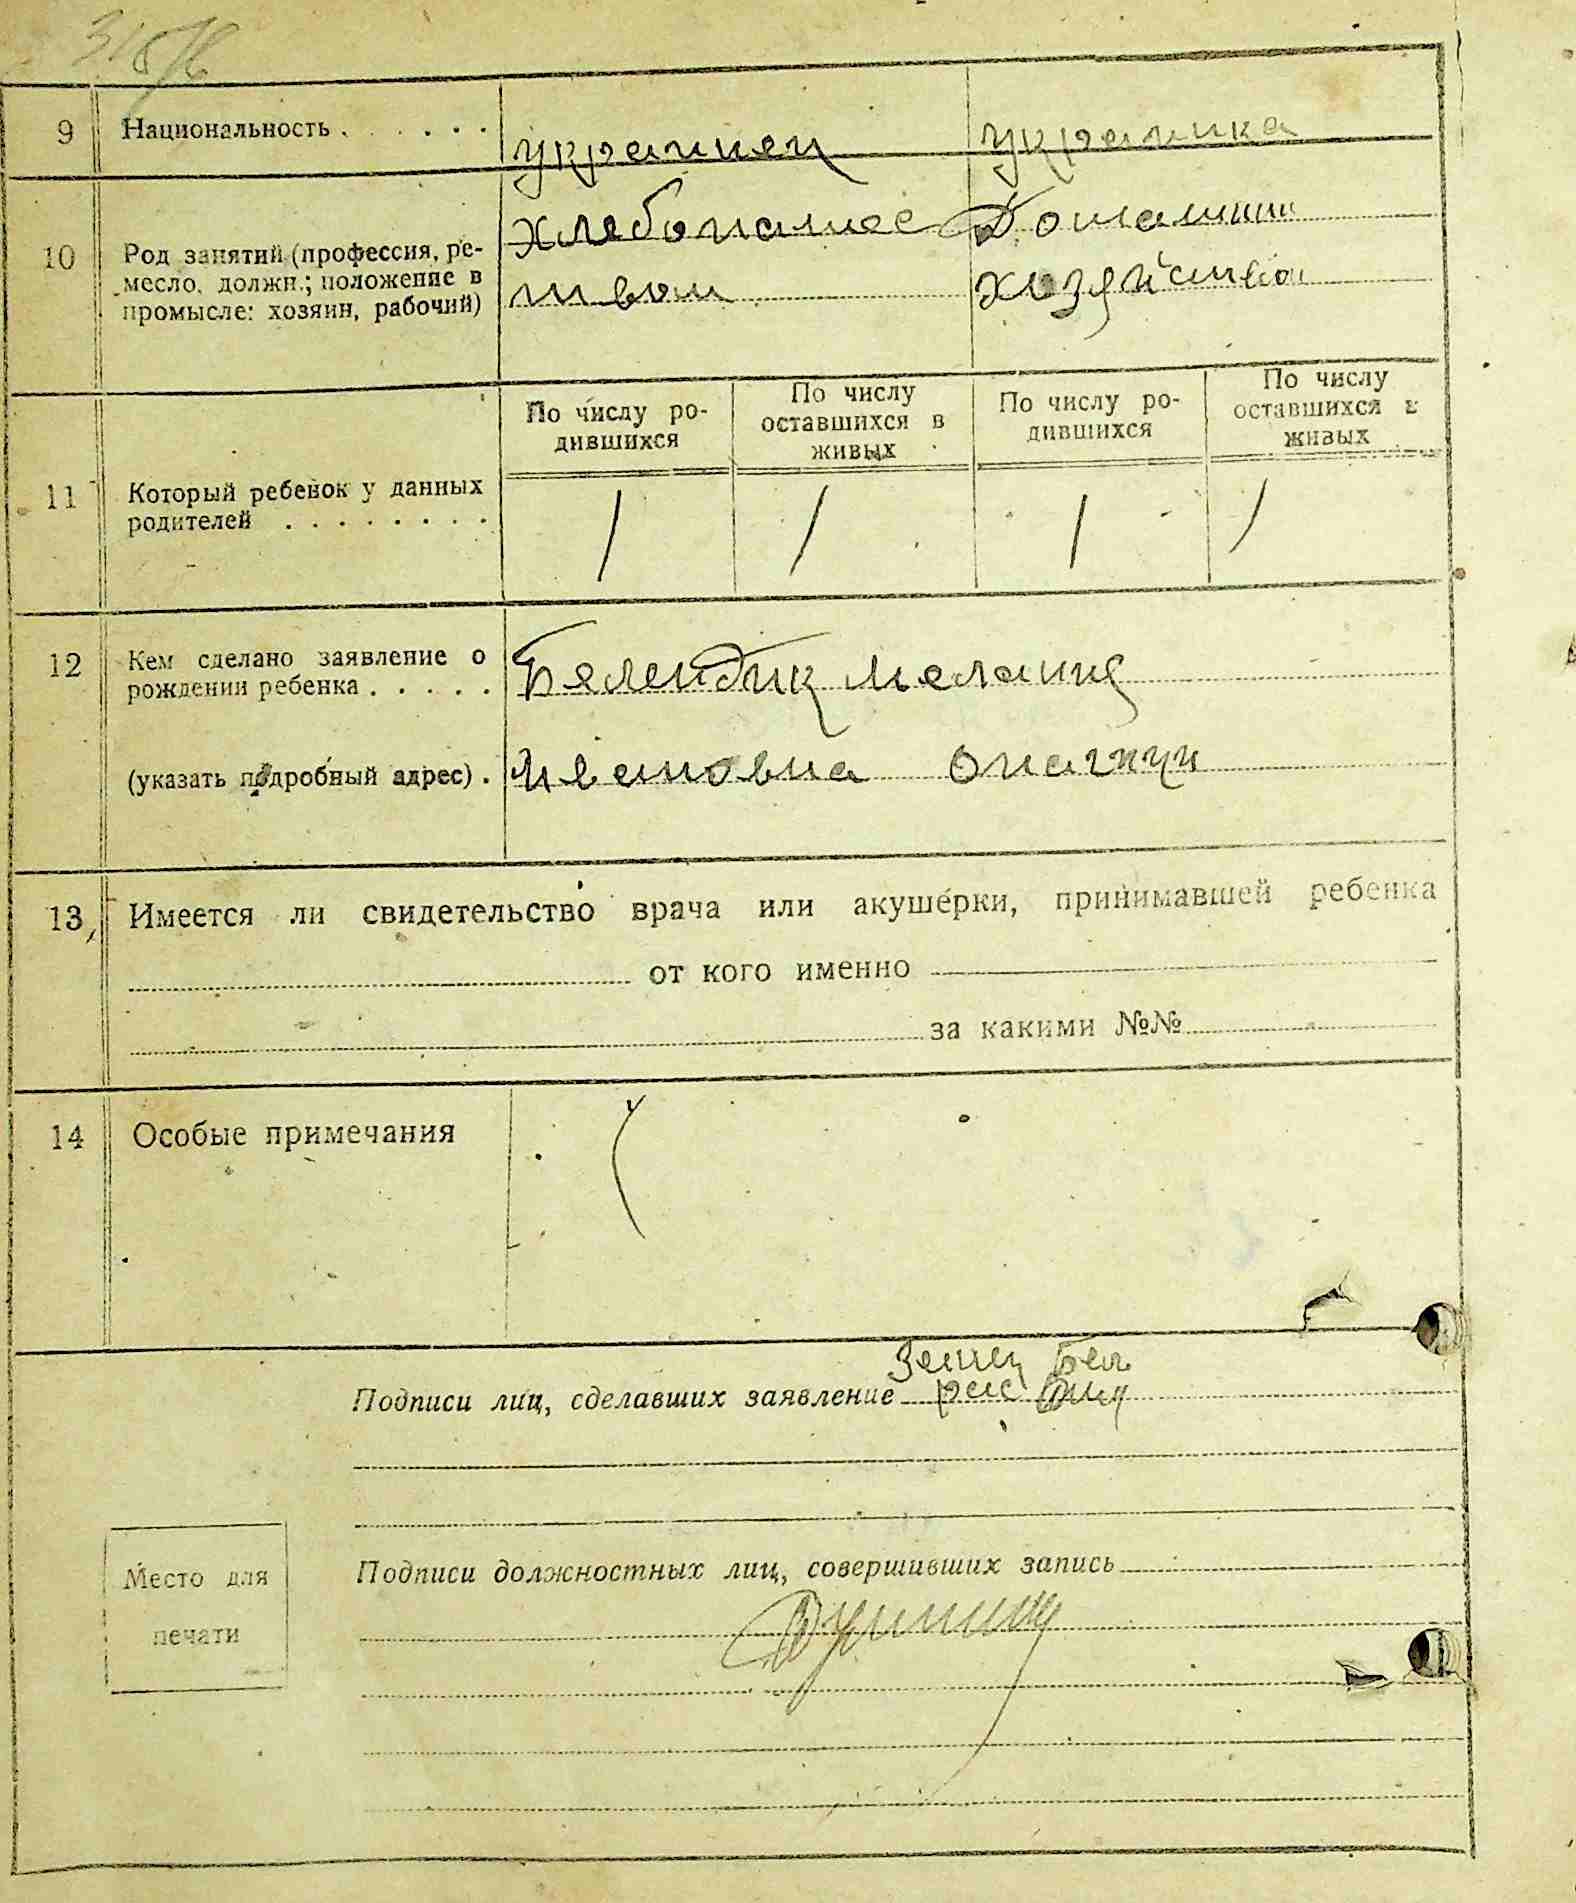 9 Национальность . . . . . . украинец украинка
10 Род занятий (профессия, ре-
месло, должн.; положение в
промысле: хозяин, рабочий)
хлебопашес Домашним
твом хозяйством
По числу ро-
дившихся
По числу
оставшихся в
живых
По числу ро-
дившихся
По числу
оставшихся в
живых
11 Который ребенок у данных
родителей . . . . . . . .
1 1 1 1
12 Кем сделано заявление о
рождении ребенка . . . . .
Белендик Мелания
(указать подробный адрес) .
Ивановна
13 Имеется ли свидетельство врача или акушерки, принимавшей ребенка
от кого именно
за какими №№
14 Особые примечания
Подписи лиц, сделавших заявление
Подписи должностных лиц, совершивших запись
Место для
печати